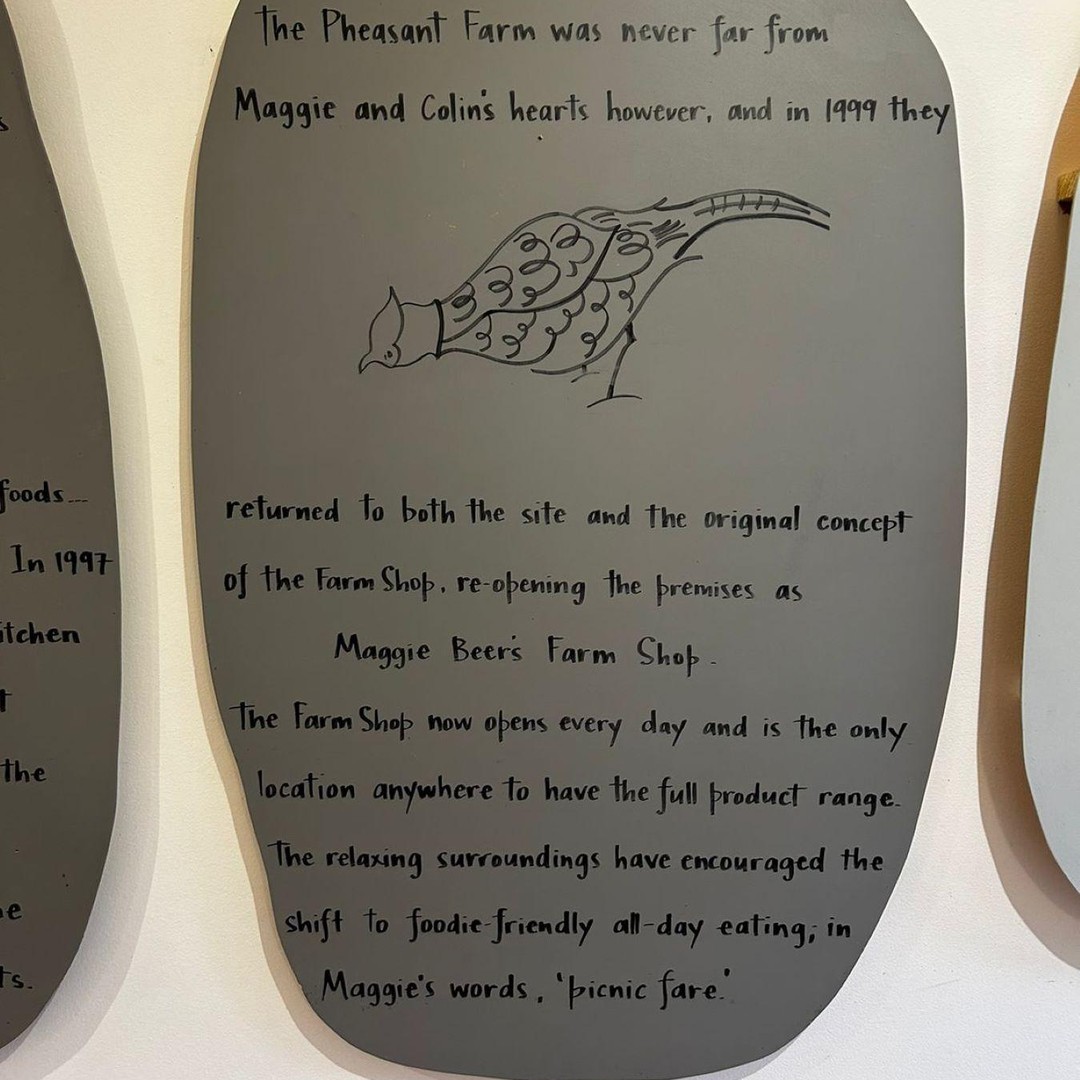 The Pheasant Farm was never far from
Maggie and Colin's hearts however, and in 1999 they
returned to both the site and the original concept
of the Farm Shop, re-opening the premises as
Maggie Beer's Farm Shop.
The Farm Shop now opens every day and is the only
location anywhere to have the full product range.
The relaxing surroundings have encouraged the
shift to foodie-friendly all-day eating; in
Maggie's words, 'picnic fare.'
foods...
In 1997
the